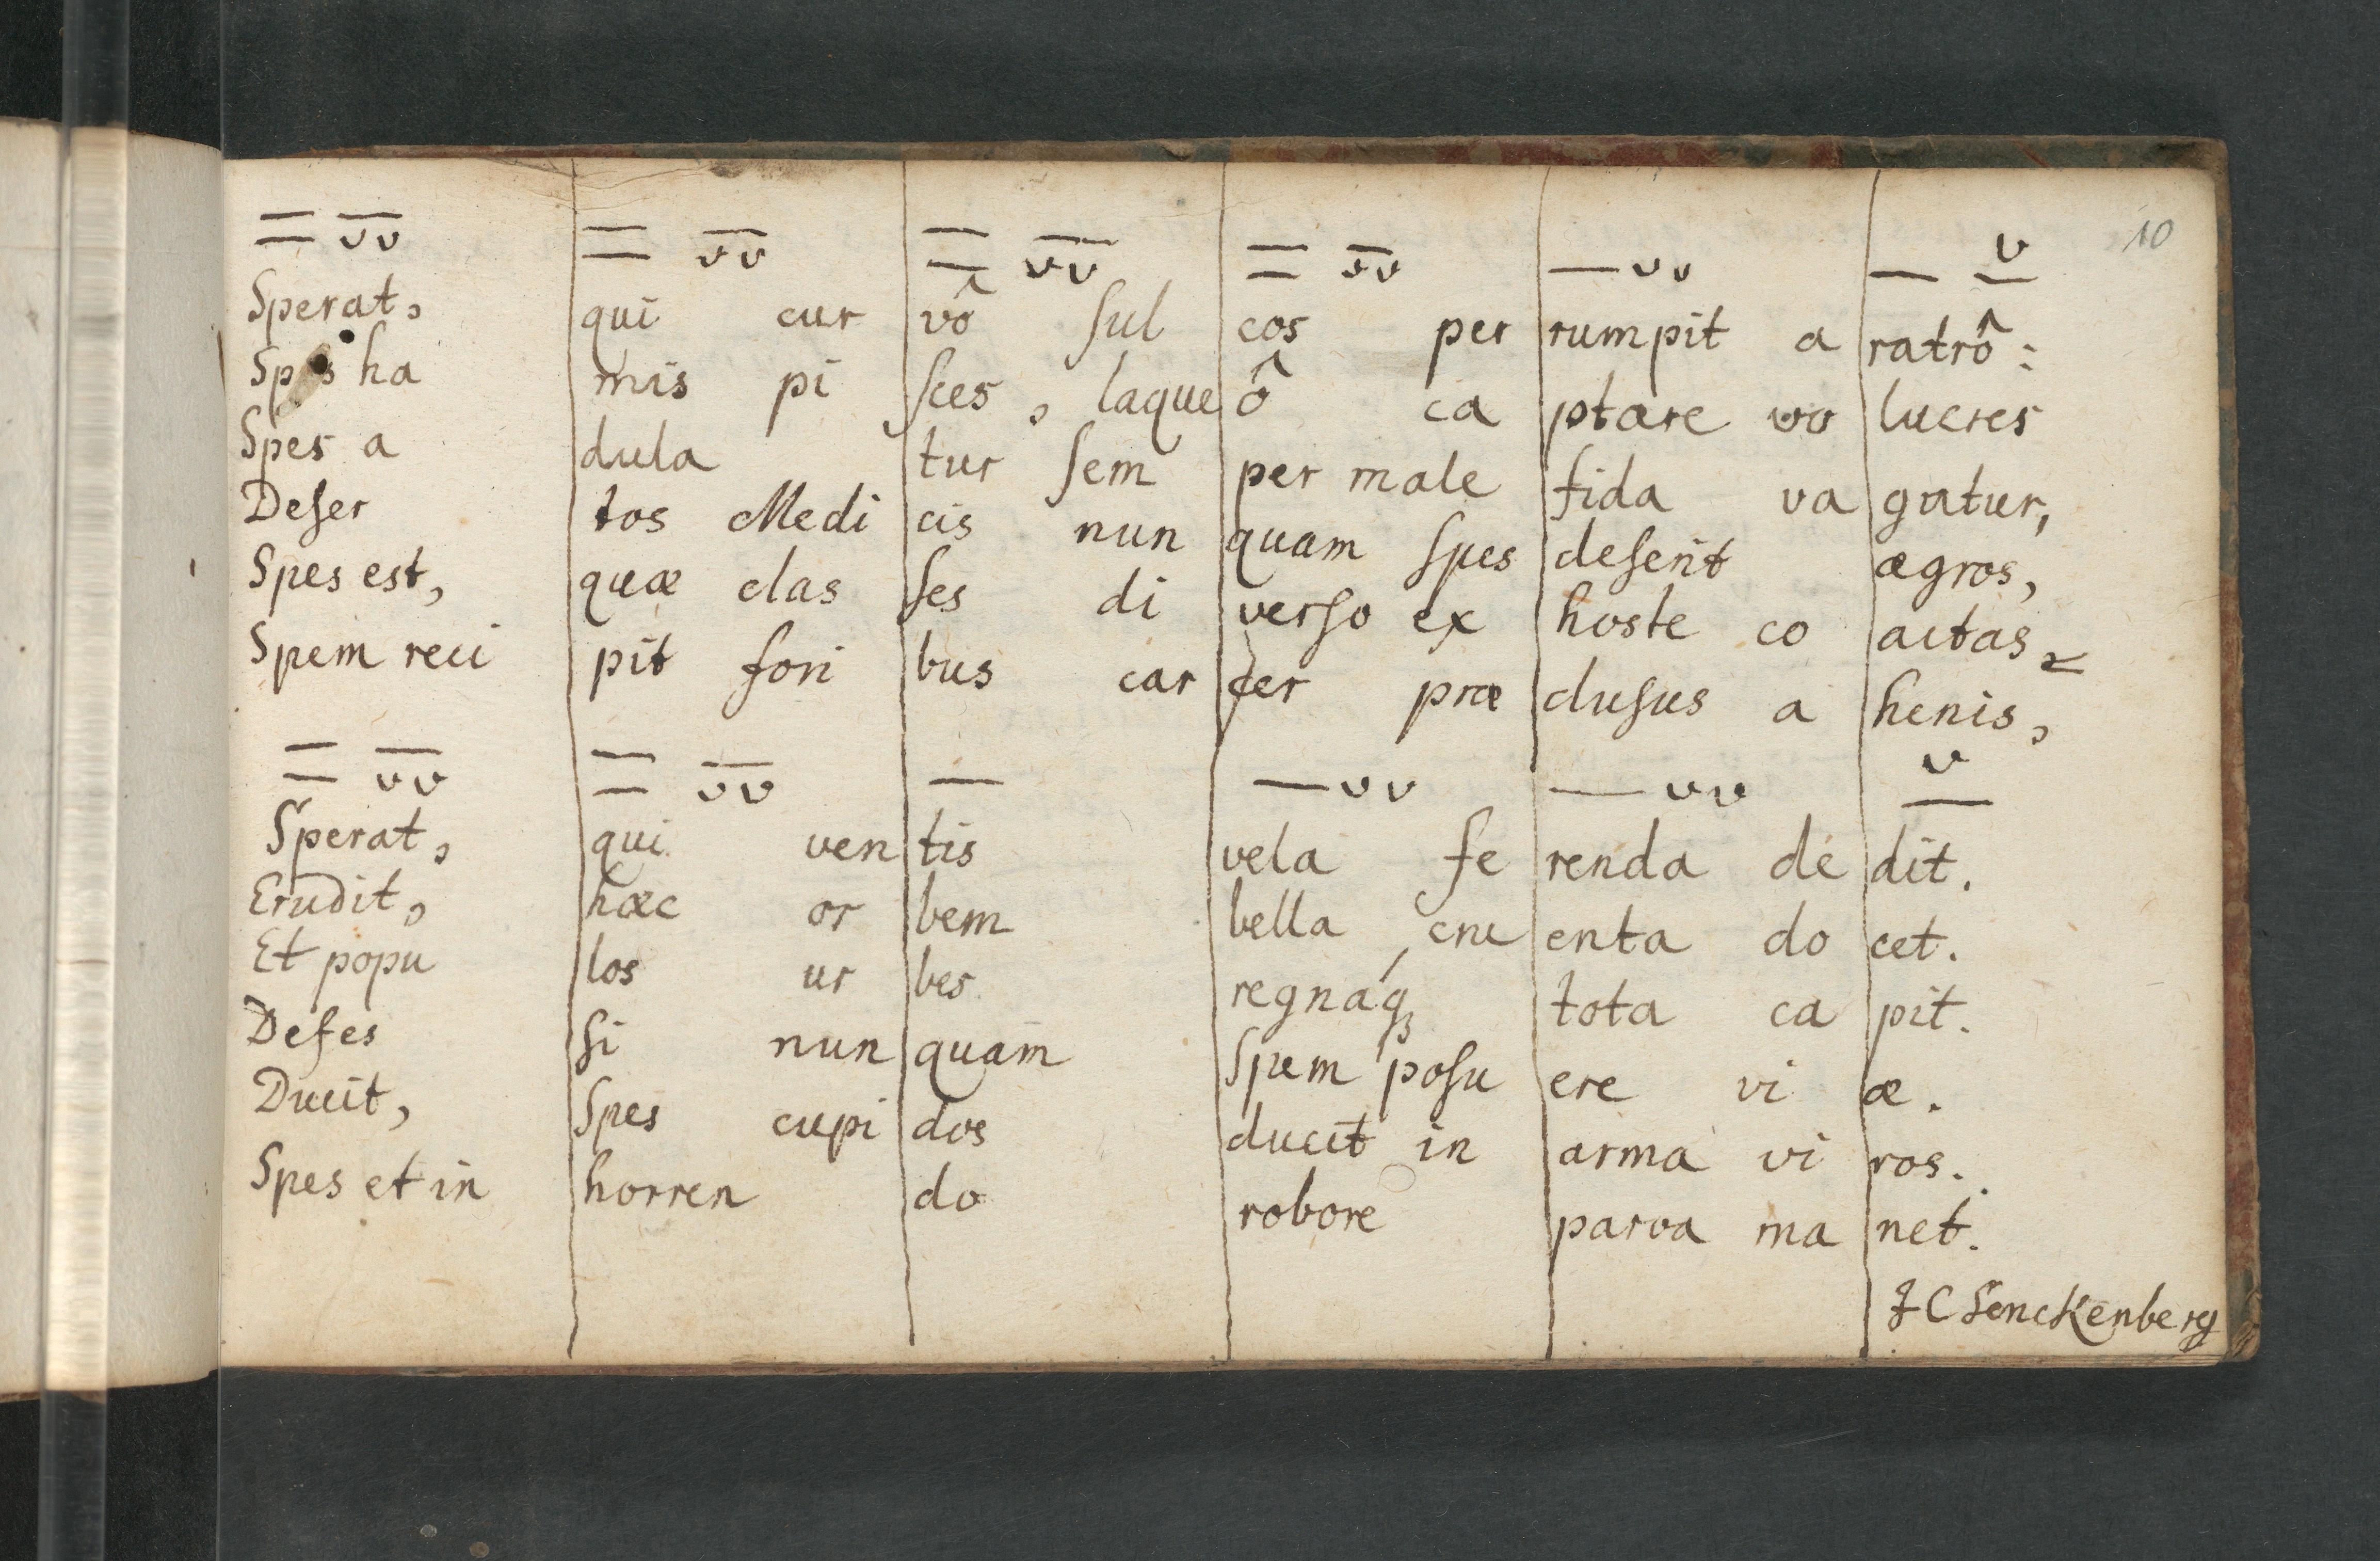 10
— — ᴗᴗ | — — ᴗᴗ | — — ᴗᴗ | — — ᴗᴗ | —ᴗᴗ | — ᴗ
Sperat, qui cur vô ſul cos per rumpit a ratrô:
Spes ha mis pi ſces, laque ô ca ptare vo lucres
Spes a dula tur ſem per male fida va gatur,
Deſer tos Medi cis nun quam ſpes deſerit ægros,
Spes est, quæ clas ſes di verſo ex hoste co actas
Spem reci pit fori bus car cer præ cluſus a henis,
— — ᴗᴗ | — — ᴗᴗ | — | —ᴗᴗ | —ᴗᴗ | ᴗ
Sperat, qui ven tis vela fe renda de dit.
Erudit, hæc or bem bella cru enta do cet.
Et popu los ur bes regnáq; tota ca pit.
Defes ſi nun quam Spem poſu ere vi æ.
Ducit, Spes cupi dos ducit in arma vi ros.
Spes et in horren do robore parva ma net.
J C Senckenberg